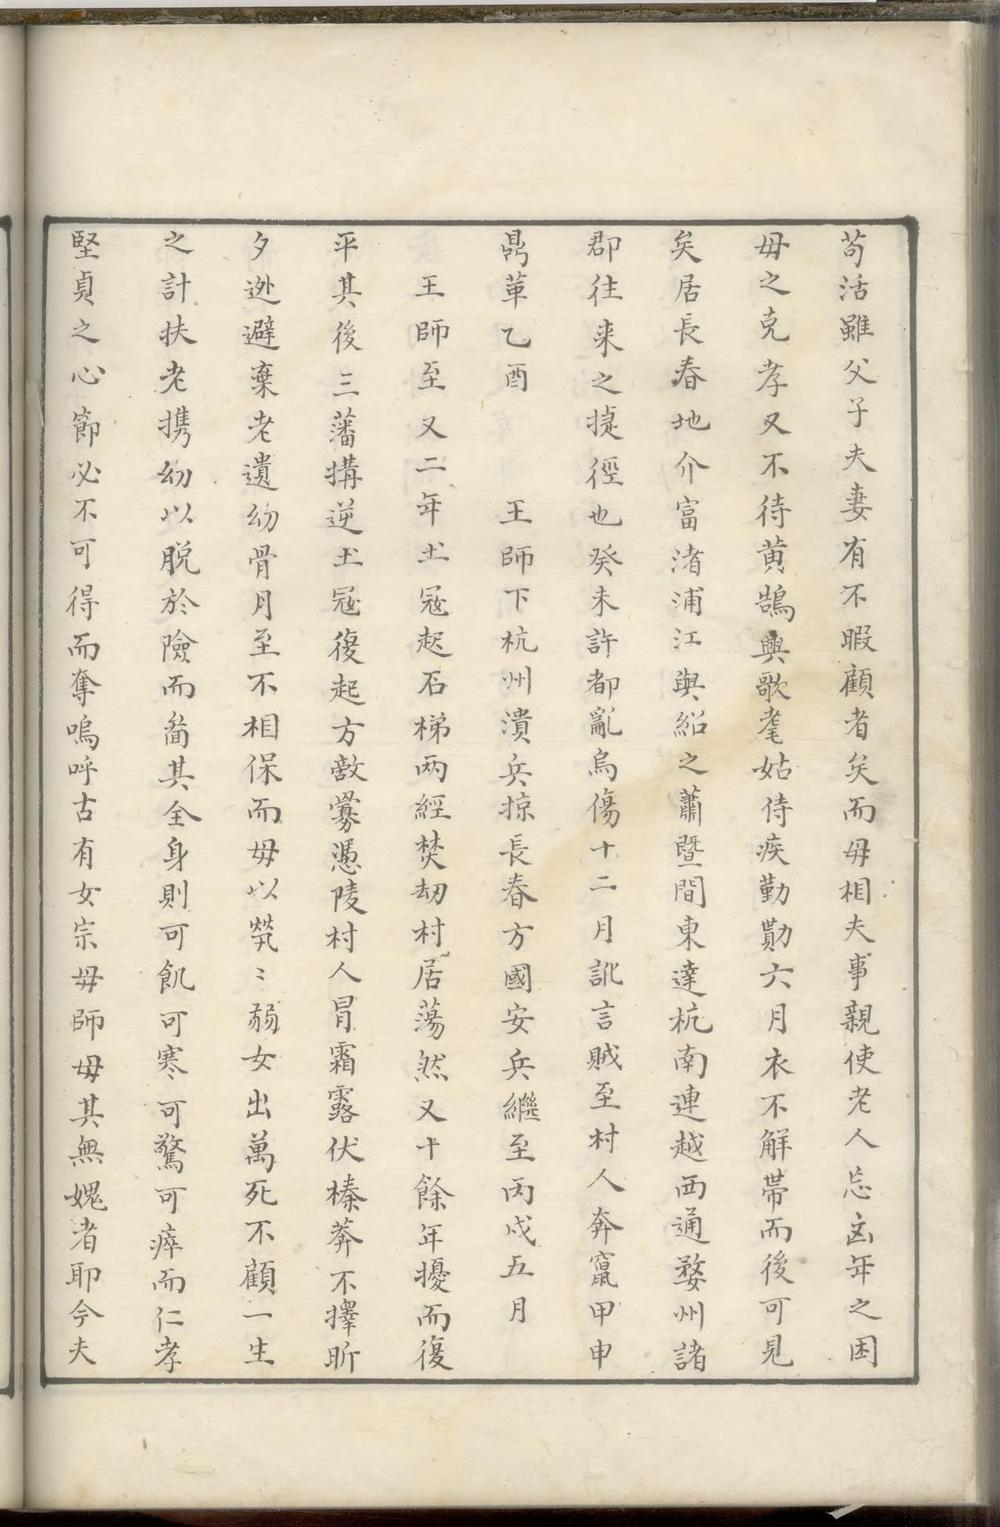 苟活雖父子夫妻有不暇顧者矣而母相夫事親使老人忘凶年之困
母之克孝又不待黄鵠興歌耄姑侍疾勤勩六月衣不解帶而後可見
矣居長春地介富渚浦江與紹之蕭暨間東達杭南連越西通婺州諸
郡往来之捷徑也癸未許都亂烏傷十二月訛言賊至村人奔竄甲申
鼎革乙酉　　王師下杭州潰兵掠長春方國安兵繼至丙戌五月
王師至又二年土冦起石梯兩經焚刼村居蕩然又十餘年擾而復
平其後三藩搆逆土冦復起方敵㸑憑陵村人冒霜露伏榛莽不擇昕
夕迯避棄老遺幼骨月至不相保而母以煢〻弱女出萬死不顧一生
之計扶老携幼以脱於險而啚其全身則可飢可寒可驚可瘁而仁孝
堅貞之心節必不可得而奪嗚呼古有女宗母師母其無媿者耶今夫